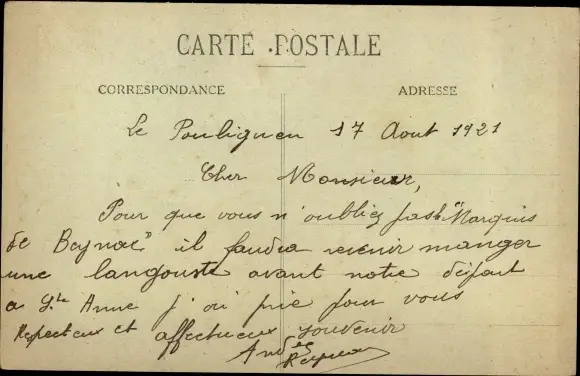 CARTE POSTALE
CORRESPONDANCE
ADRESSE
Le Pouliguen 17 Aout 1921
Cher Monsieur,
Pour que vous n'oubliez pas le "Marquis
de Beynac" il faudra revenir manger
une langouste avant notre départ
a Ste Anne j'ai prié pour vous
Respectueux et affectueux souvenir